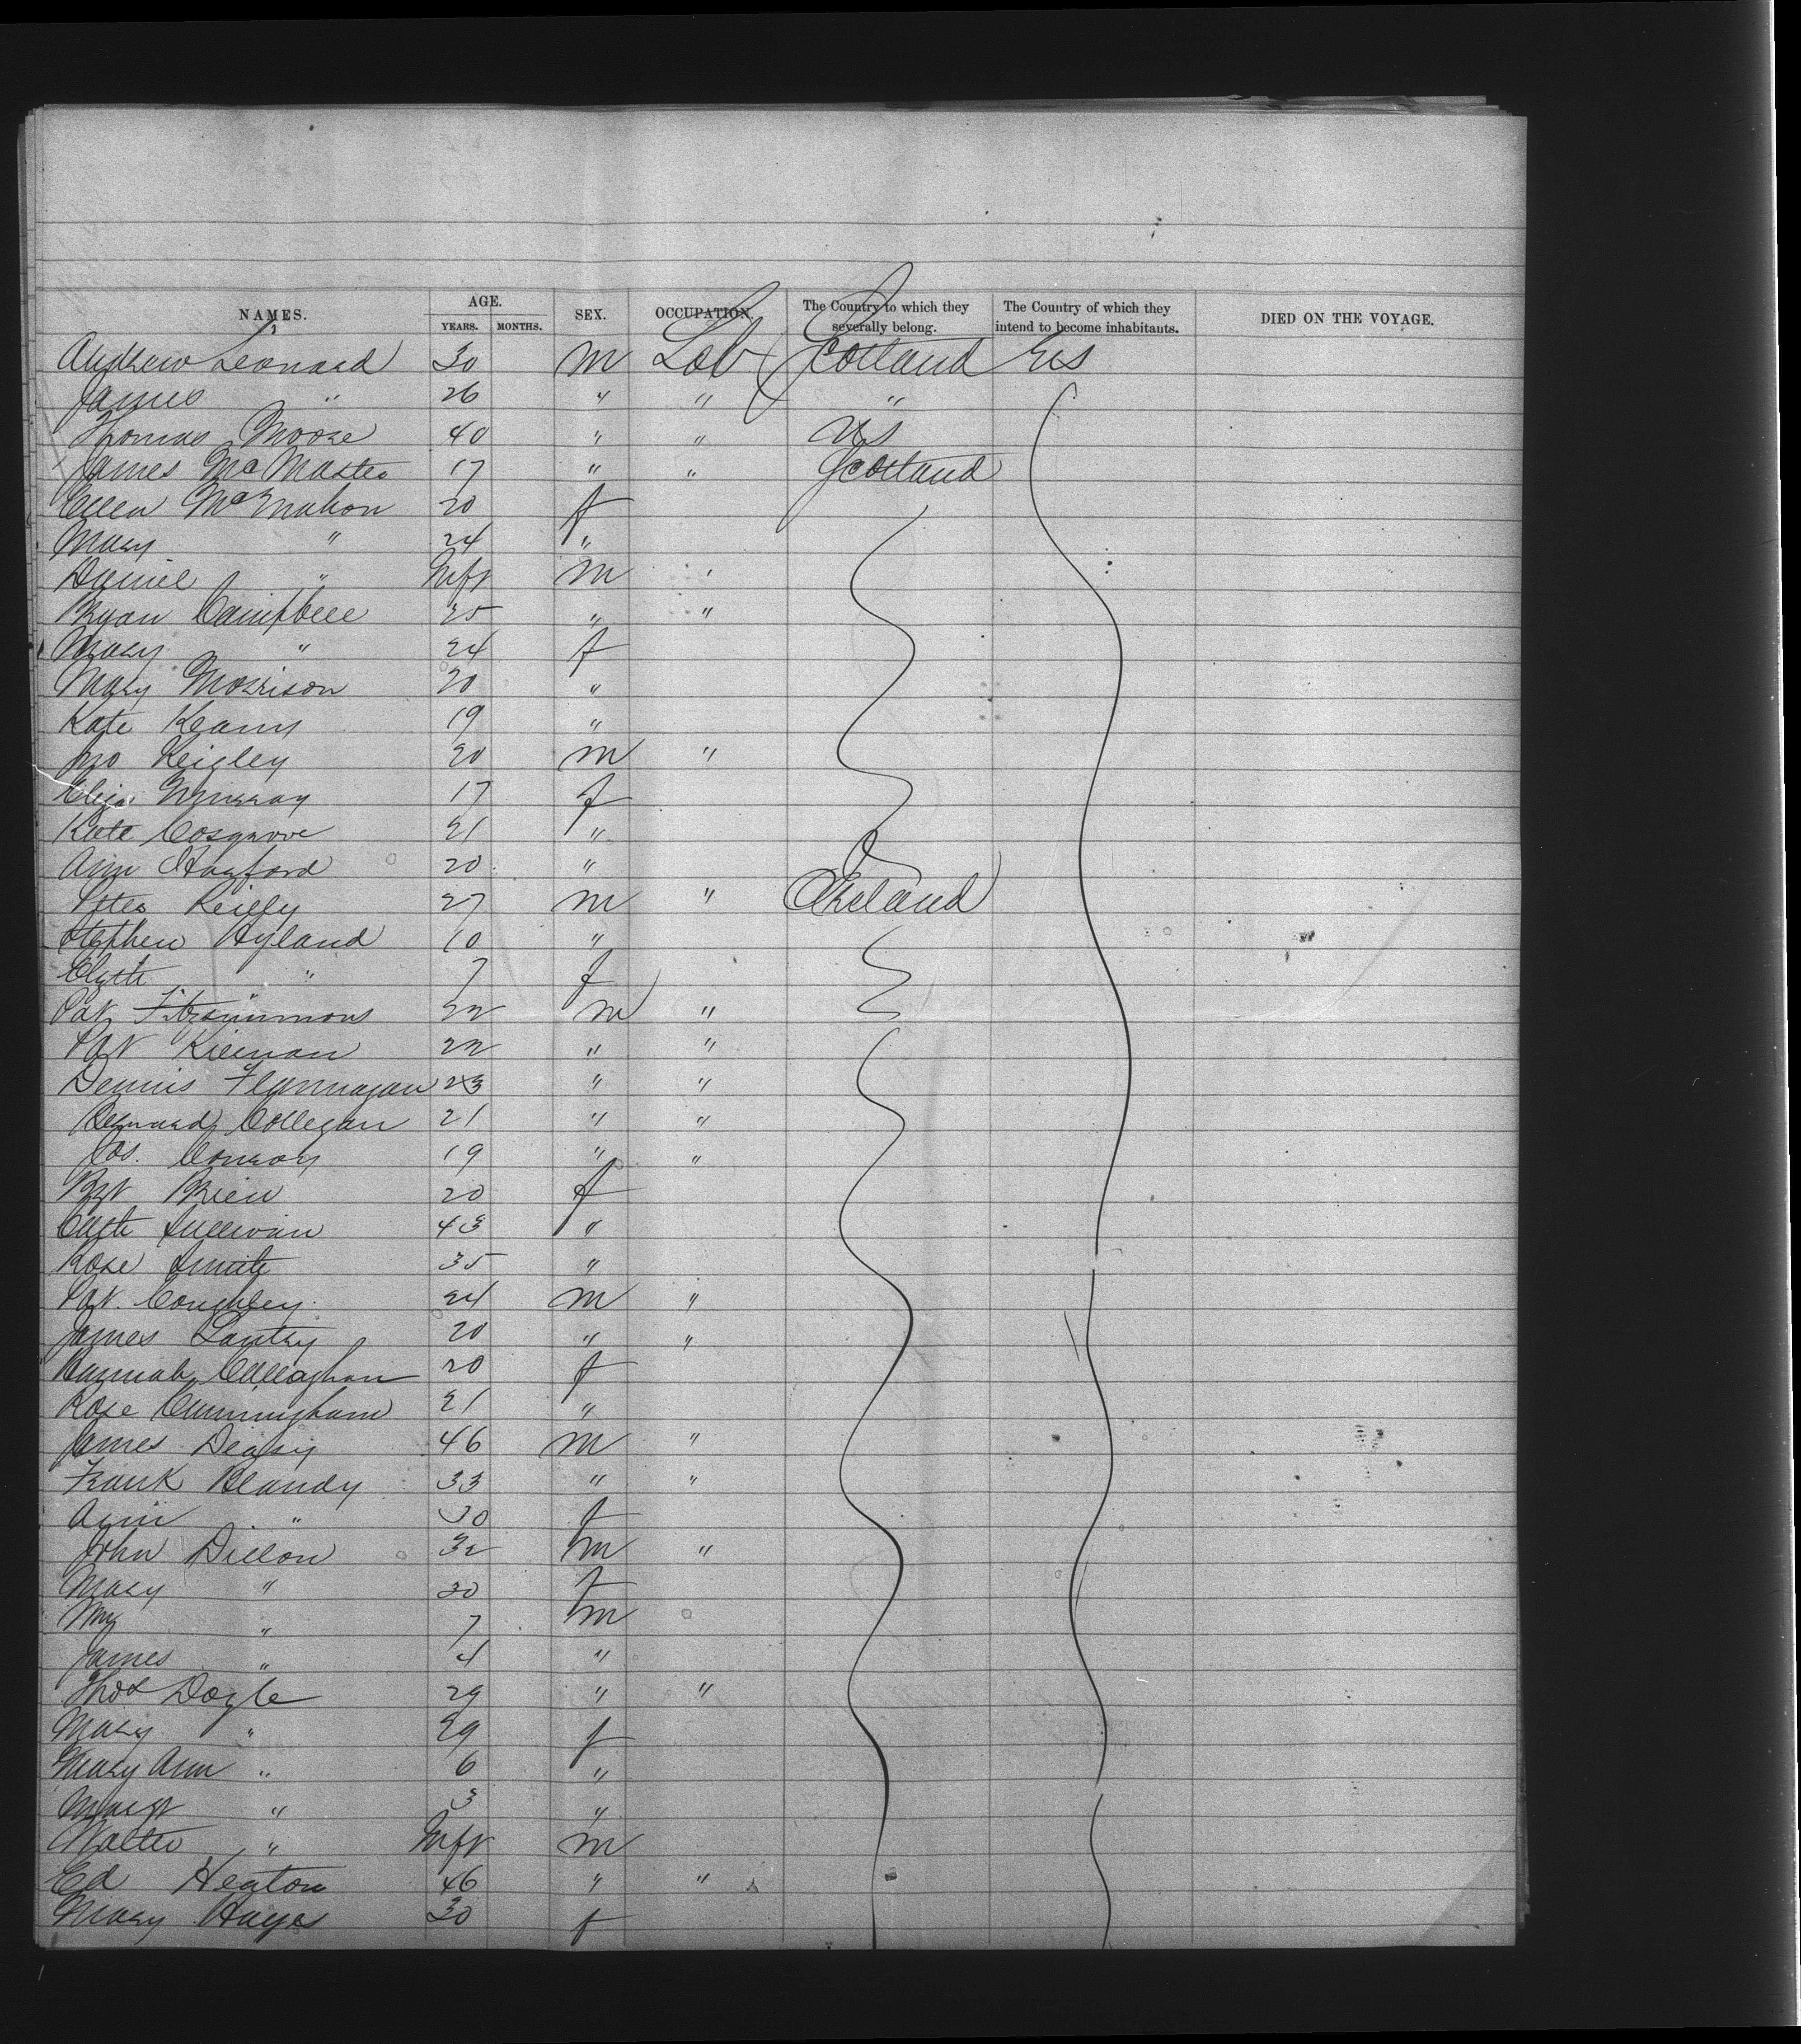 NAMES. AGE. YEARS. MONTHS. SEX. OCCUPATION. The Country to which they severally belong. The Country of which they intend to become inhabitants. DIED ON THE VOYAGE.
Andrew Leonard 30 m Lab Scotland US
James " 26 " " "
Thomas Moore 40 " " US
James McMaster 17 " " Scotland
Ellen McMahon 20 f
Mary " 24 "
Daniel " Inft m
Bryan Campbell 25 " "
Mary " 24 f
Mary Morrison 20 "
Kate Keany 19 "
Jno Keigley 20 m "
Eliza Murray 17 f
Kate Cosgrove 21 "
Ann Hayford 20 "
Peter Reilly 27 m " Ireland
Stephen Hyland 10 "
Cath " 7 f
Pat Fitzsimmons 22 m "
Pat Kiernan 22 " "
Dennis Flannagan 23 " "
Bernard Collegan 21 " "
Jos. Conroy 19 " "
Bgt Brien 20 f
Cath Sullivan 43 "
Rose Smith 35 "
Pat. Coughley 24 m "
James Lantry 20 " "
Hannah Callaghan 20 f
Rose Cunningham 21 "
James Deasy 46 m "
Frank Blandy 33 " "
Ann " 30 f
John Dillon 32 m "
Mary " 30 f
Wm " 7 m
James " 4 "
Thos Doyle 29 " "
Mary " 29 f
Mary Ann " 6 "
Margt " 3 "
Walter " Inft m
Ed Heaton 46 " "
Mary Hayes 30 f